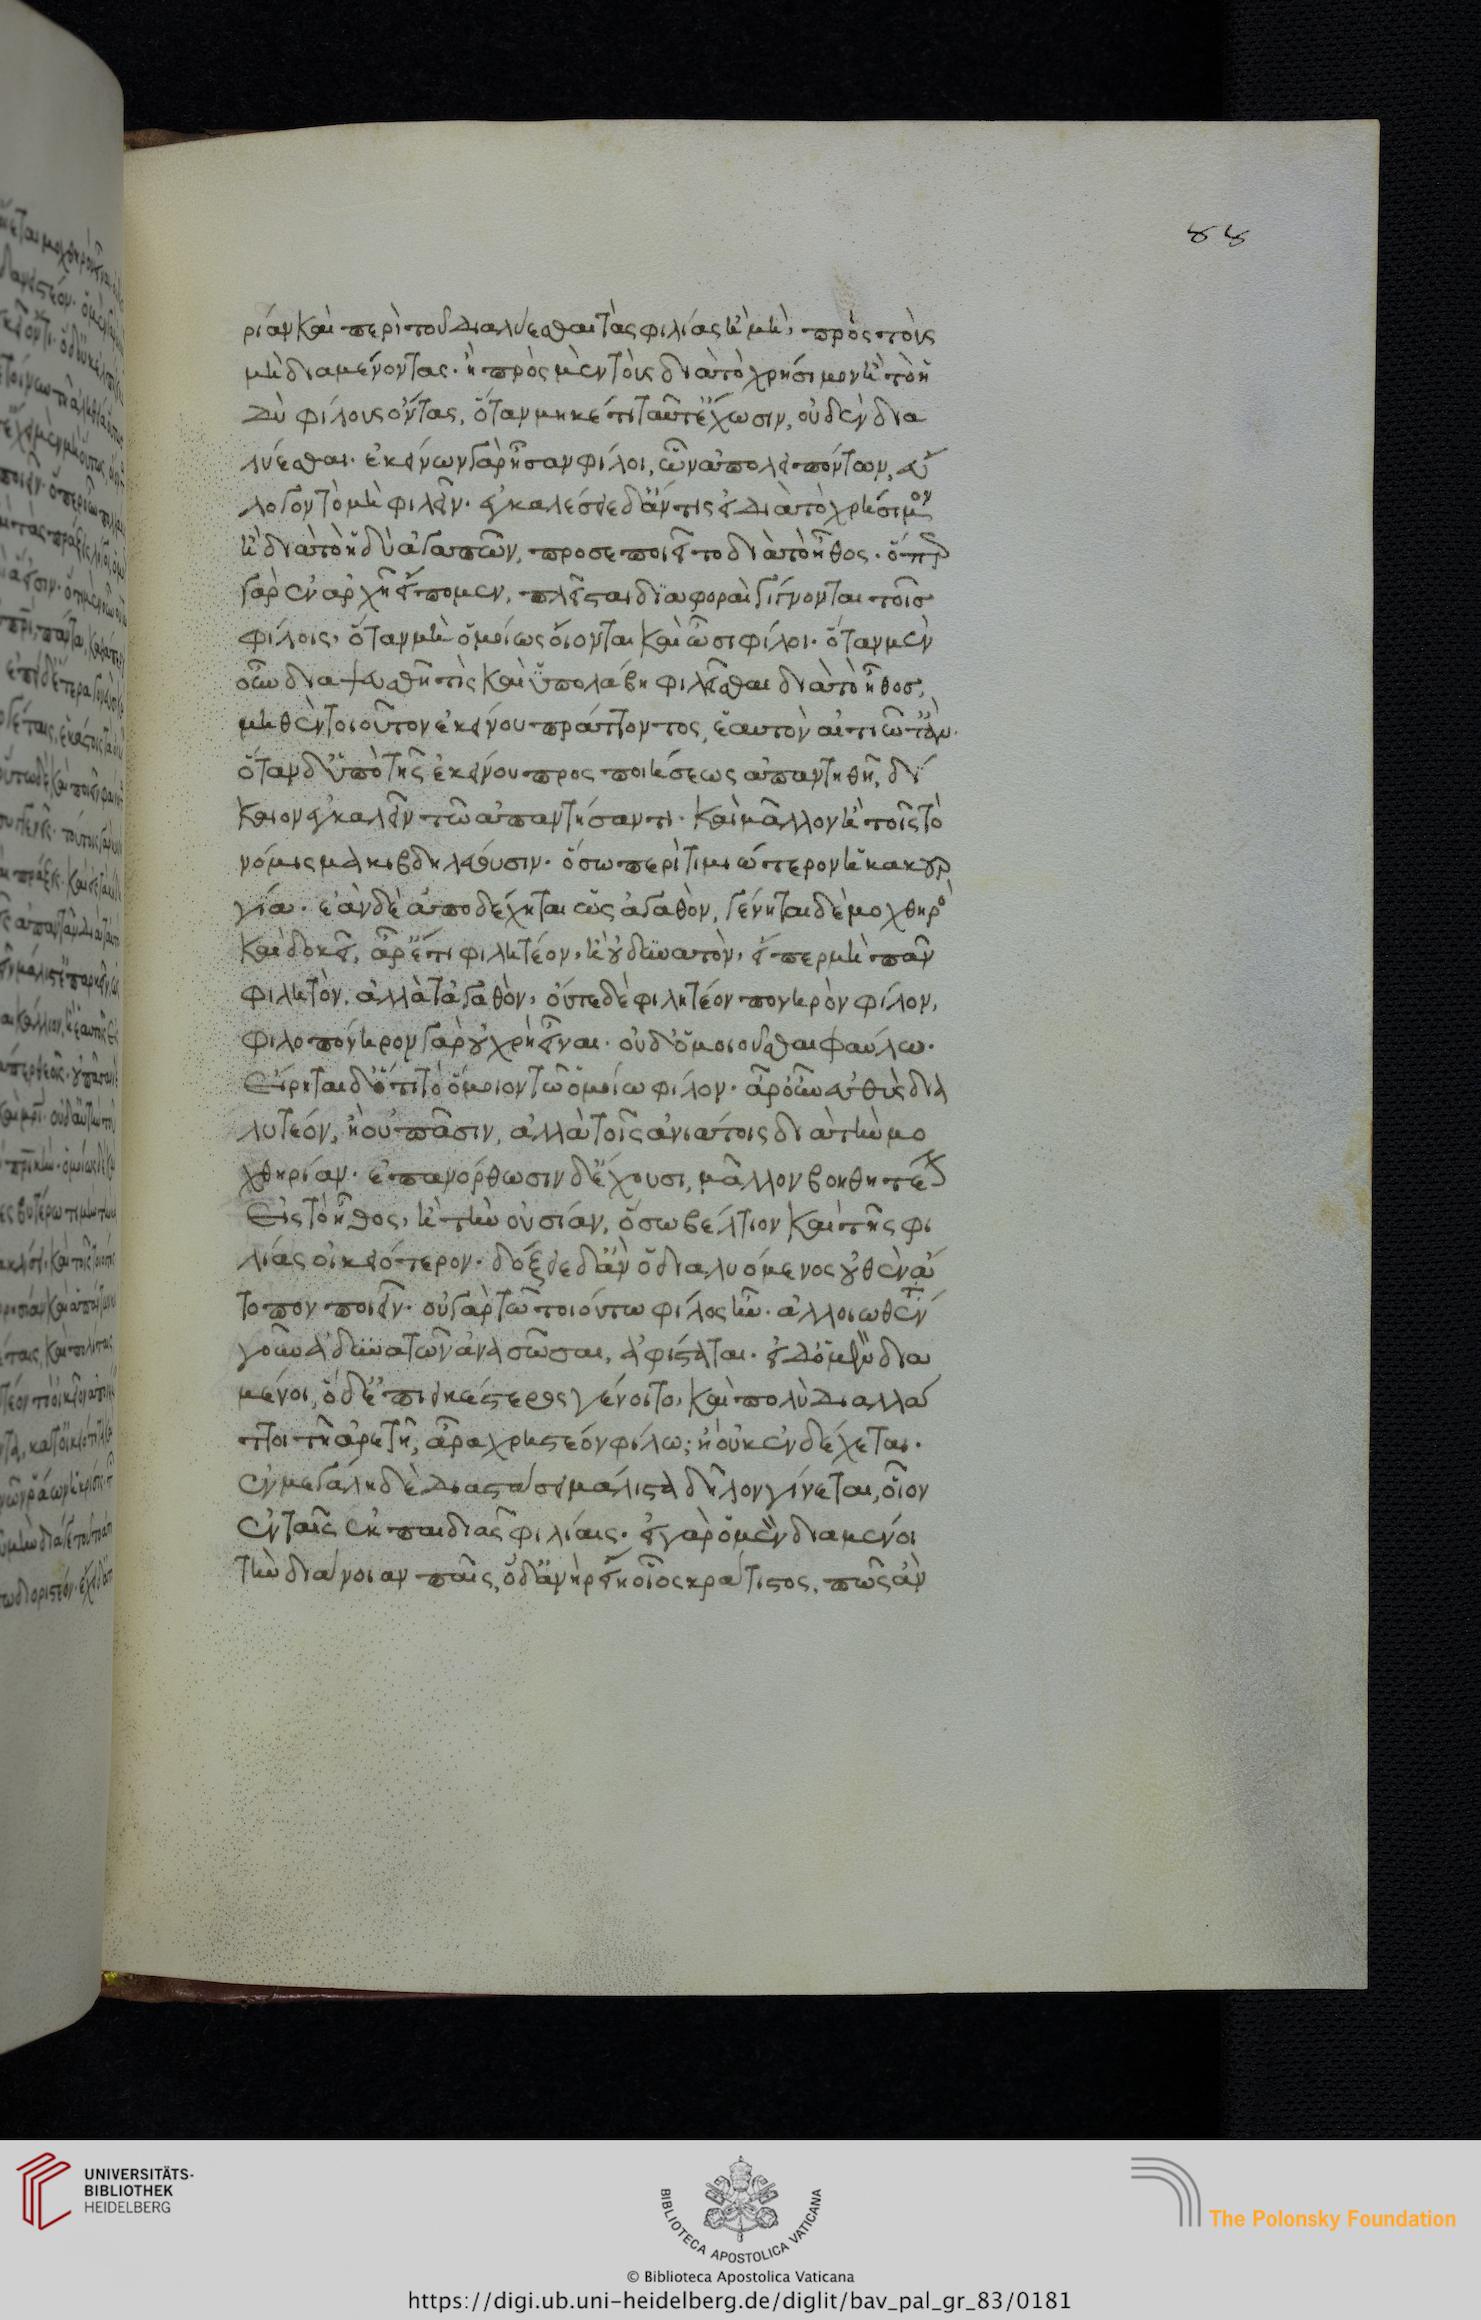 88
ρίαν καὶ περὶ τοῦ διαλύεσθαι τὰς φιλίας ἢ μὴ, πρὸς τοὺς
μὴ διαμένοντας. ἢ πρὸς μὲν τοὺς διὰ τὸ χρήσιμον ἢ τὸ ἡ
δὺ φίλους ὄντας, ὅταν μηκέτι ταῦτ ἔχωσιν, οὐδὲν δια
λύεσθαι. ἐκείνων γὰρ ἦσαν φίλοι, ὧν ἀπολειπόντων, εὔ
λογον τὸ μὴ φιλεῖν. ἐγκαλέσειε δ ἄν τις εἰ διὰ τὸ χρήσιμον
ἢ διὰ τὸ ἡδὺ ἀγαπῶν, προσεποιεῖτο διὰ τὸ ἦθος. ὅπερ
γὰρ ἐν ἀρχῇ εἴπομεν, πλεῖσται διαφοραὶ γίγνονται τοῖς
φίλοις, ὅταν μὴ ὁμοίως οἴονται καὶ ὦσι φίλοι. ὅταν μὲν
οὖν διαψευσθῇ τὶς καὶ ὑπολάβη φιλεῖσθαι διὰ τὸ ἦθος,
μηθὲν τοιοῦτον ἐκείνου πράττοντος, ἑαυτὸν αἰτιῶτ ἄν.
ὅταν δ ὑπὸ τῆς ἐκείνου προσποιήσεως ἀπαντηθῆ, δί
καιον ἐγκαλεῖν τῶ ἀπαντήσαντι. καὶ μᾶλλον ἢ τοῖς τὸ
νόμισμα κιβδηλεύουσιν. ὅσω περὶ τιμιώτερον ἡ κακουρ
γία. ἐὰν δὲ ἀποδέχηται ὡς ἀγαθὸν, γένηται δὲ μοχθηρὸς
καὶ δοκεῖ, ἆρ ἔτι φιλητέον, ἢ οὐ δυνατὸν, εἴπερ μὴ πᾶν
φιλητὸν, ἀλλὰ τἀγαθὸν, οὔτε δὲ φιλητέον πονηρὸν φίλον,
φιλοπόνηρον γὰρ οὐ χρὴ εἶναι. οὐδ ὁμοιοῦσθαι φαύλω.
εἴρηται δ ὅτι τὸ ὅμοιον τῶ ὁμοίω φίλον. ἆρ οὖν εὐθὺς δια
λυτέον, ἢ οὐ πᾶσιν, ἀλλὰ τοῖς ἀνιάτοις διὰ τὴν μο
χθηρίαν. ἐπανόρθωσιν δ ἔχουσι, μᾶλλον βοηθητέον
εἰς τὸ ἦθος, ἢ τὴν οὐσίαν, ὅσω βέλτιον καὶ τῆς φι
λίας οἰκειότερον. δόξειε δ ἂν ὁ διαλυόμενος οὐθὲν ἄ
τοπον ποιεῖν. οὐ γὰρ τῶ τοιούτω φίλος ἦν. ἀλλοιωθέντ
γοῦν ἀδυνατῶν ἀνασῶσαι, ἀφίσταται. εἰ δ ὁ μὲν δια
μένοι, ὁ δ ἐπιεικέστερος γένοιτο, καὶ πολὺ διαλλά
ττοι τῆ ἀρετῆ, ἆρα χρηστέον φίλω; ἢ οὐκ ἐνδέχεται.
ἐν μεγάλη δὲ διαστάσει μάλιστα δῆλον γίνεται, οἷον
ἐν ταῖς ἐκ παιδιᾶς φιλίαις. εἰ γὰρ ὁ μὲν διαμένοι
τὴν διάνοιαν παῖς, ὁ δ ἀνὴρ εἴη οἷος κράτιστος, πῶς ἂν
UNIVERSITÄTS-
BIBLIOTHEK
HEIDELBERG
BIBLIOTECA APOSTOLICA VATICANA
The Polonsky Foundation
© Biblioteca Apostolica Vaticana
https://digi.ub.uni-heidelberg.de/diglit/bav_pal_gr_83/0181